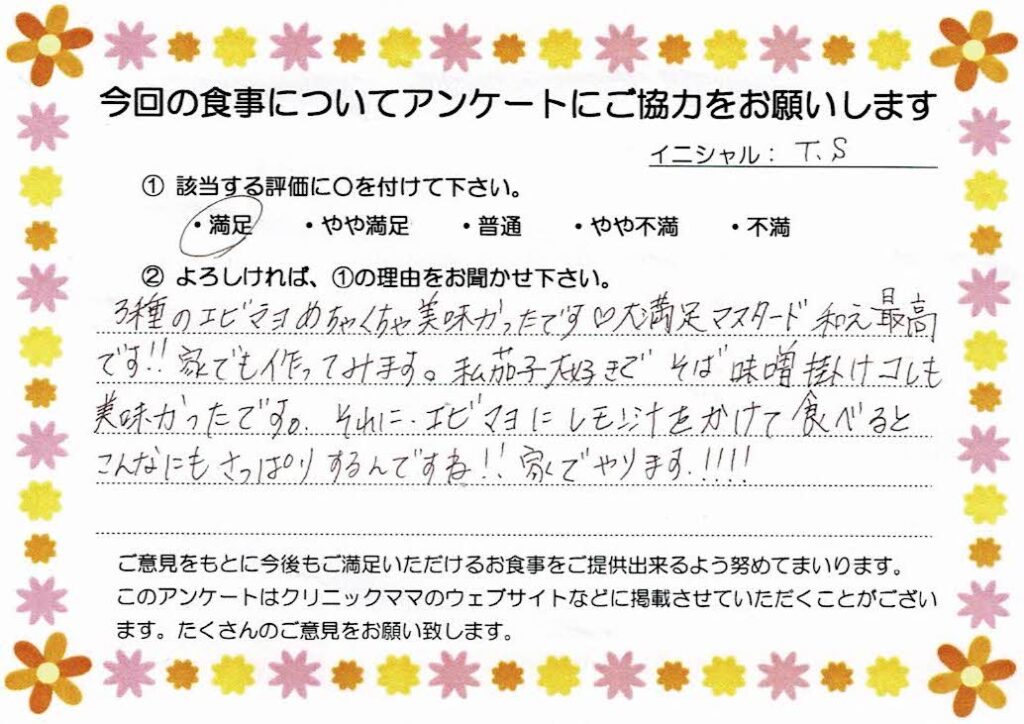 今回の食事についてアンケートにご協力をお願いします
イニシャル： T.S
① 該当する評価に〇を付けて下さい。
・満足 ・やや満足 ・普通 ・やや不満 ・不満
② よろしければ、①の理由をお聞かせ下さい。
3種のエビマヨめちゃくちゃ美味かったです♡大満足マスタード和え最高
です!!家でも作ってみます。私茄子大好きで そば味噌掛けコレも
美味かったです。それに、エビマヨにレモン汁をかけて食べると
こんなにもさっぱりするんですね!!家でやります.!!!!
ご意見をもとに今後もご満足いただけるお食事をご提供出来るよう努めてまいります。
このアンケートはクリニックママのウェブサイトなどに掲載させていただくことがござい
ます。たくさんのご意見をお願い致します。